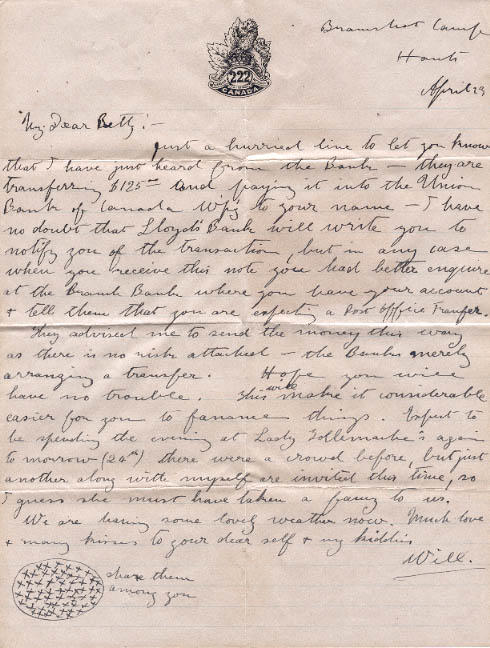 Bramshot Camp
Hants
April 23
222
CANADA
"My Dear Betty:-
Just a hurried line to let you know
that I have just heard from the Bank - they are
transferring $125 and paying it into the Union
Bank of Canada Wpg to your name - I have
no doubt that Lloyds Bank will write you to
notify you of the transaction, but in any case
when you receive this note you had better enquire
at the Branch Bank where you have your account
+ tell them that you are expecting a Post Office Transfer.
They advised me to send the money this way
as there is no risk attached - the Banks merely
arranging a transfer. Hope you will
have no trouble. This will make it considerable
easier for you to fanance things. Expect to
be spending the evening at Lady Tollemache's again
to morrow (24th) there were a crowd before, but just
another along with myself are invited this time, so
I guess she must have taken a fancy to us.
We are having some lovely weather now. Much love
+ many kisses to your dear self + my kiddies
Will.
share them
among you